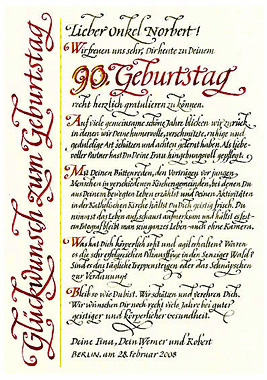 Glückwunsch zum Geburtstag
Lieber Onkel Norbert!
Wir freuen uns sehr, Dir heute zu Deinem
90. Geburtstag
recht herzlich gratulieren zu können.
Auf viele gemeinsame schöne Jahre blicken wir zurück
in denen wir Deine humorvolle, verschmitzte, ruhige und
geduldige Art schätzen und achten gelernt haben. Als liebe-
voller Partner hast Du Deine Frau hingebungsvoll gepflegt.
Mit Deinen Büttenreden, den Vorträgen vor jungen
Menschen in verschiedenen Kirchengemeinden, bei denen Du
aus Deinem bewegten Leben erzählst und Deinen Aktivitäten
in der Katholischen Kirche hältst Du Dich geistig frisch. Du
nimmst das Leben auf, schaust aufmerksam und hältst es fest –
ein Fotograf bleibt man ein ganzes Leben – auch ohne Kamera.
Was hat Dich körperlich so fit und agil erhalten? Waren
es die sehr erfolgreichen Pilzausflüge in den Senziger Wald?
Sind es das tägliche Treppensteigen oder das Schnäpschen
zur Verdauung?
Bleib so wie Du bist. Wir schätzen und verehren Dich.
Wir wünschen Dir noch recht viele Jahre bei guter
geistiger und körperlicher Gesundheit.
Deine Tina, Dein Werner und Robert
Berlin, am 28. Februar 2008